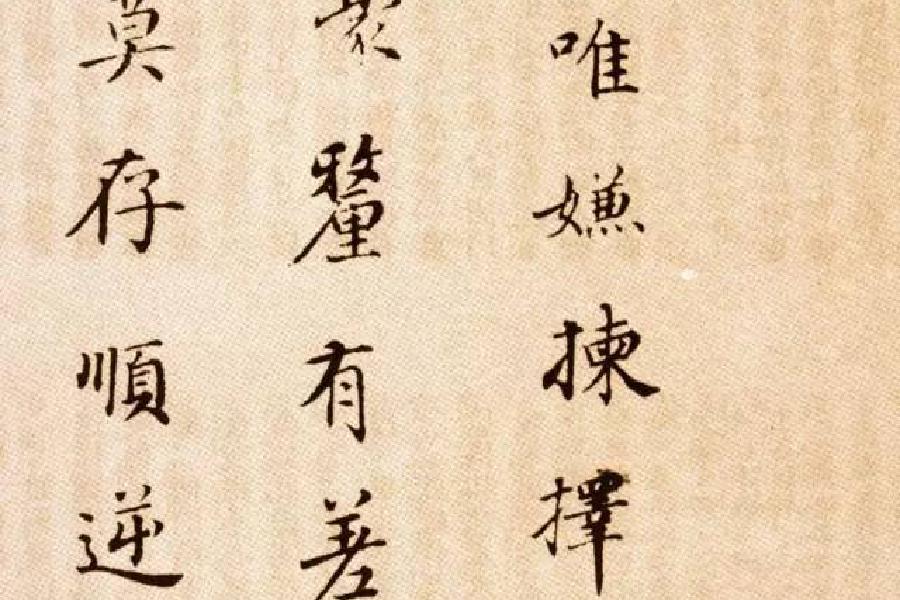 唯嫌揀擇
釐有差
莫存順逆